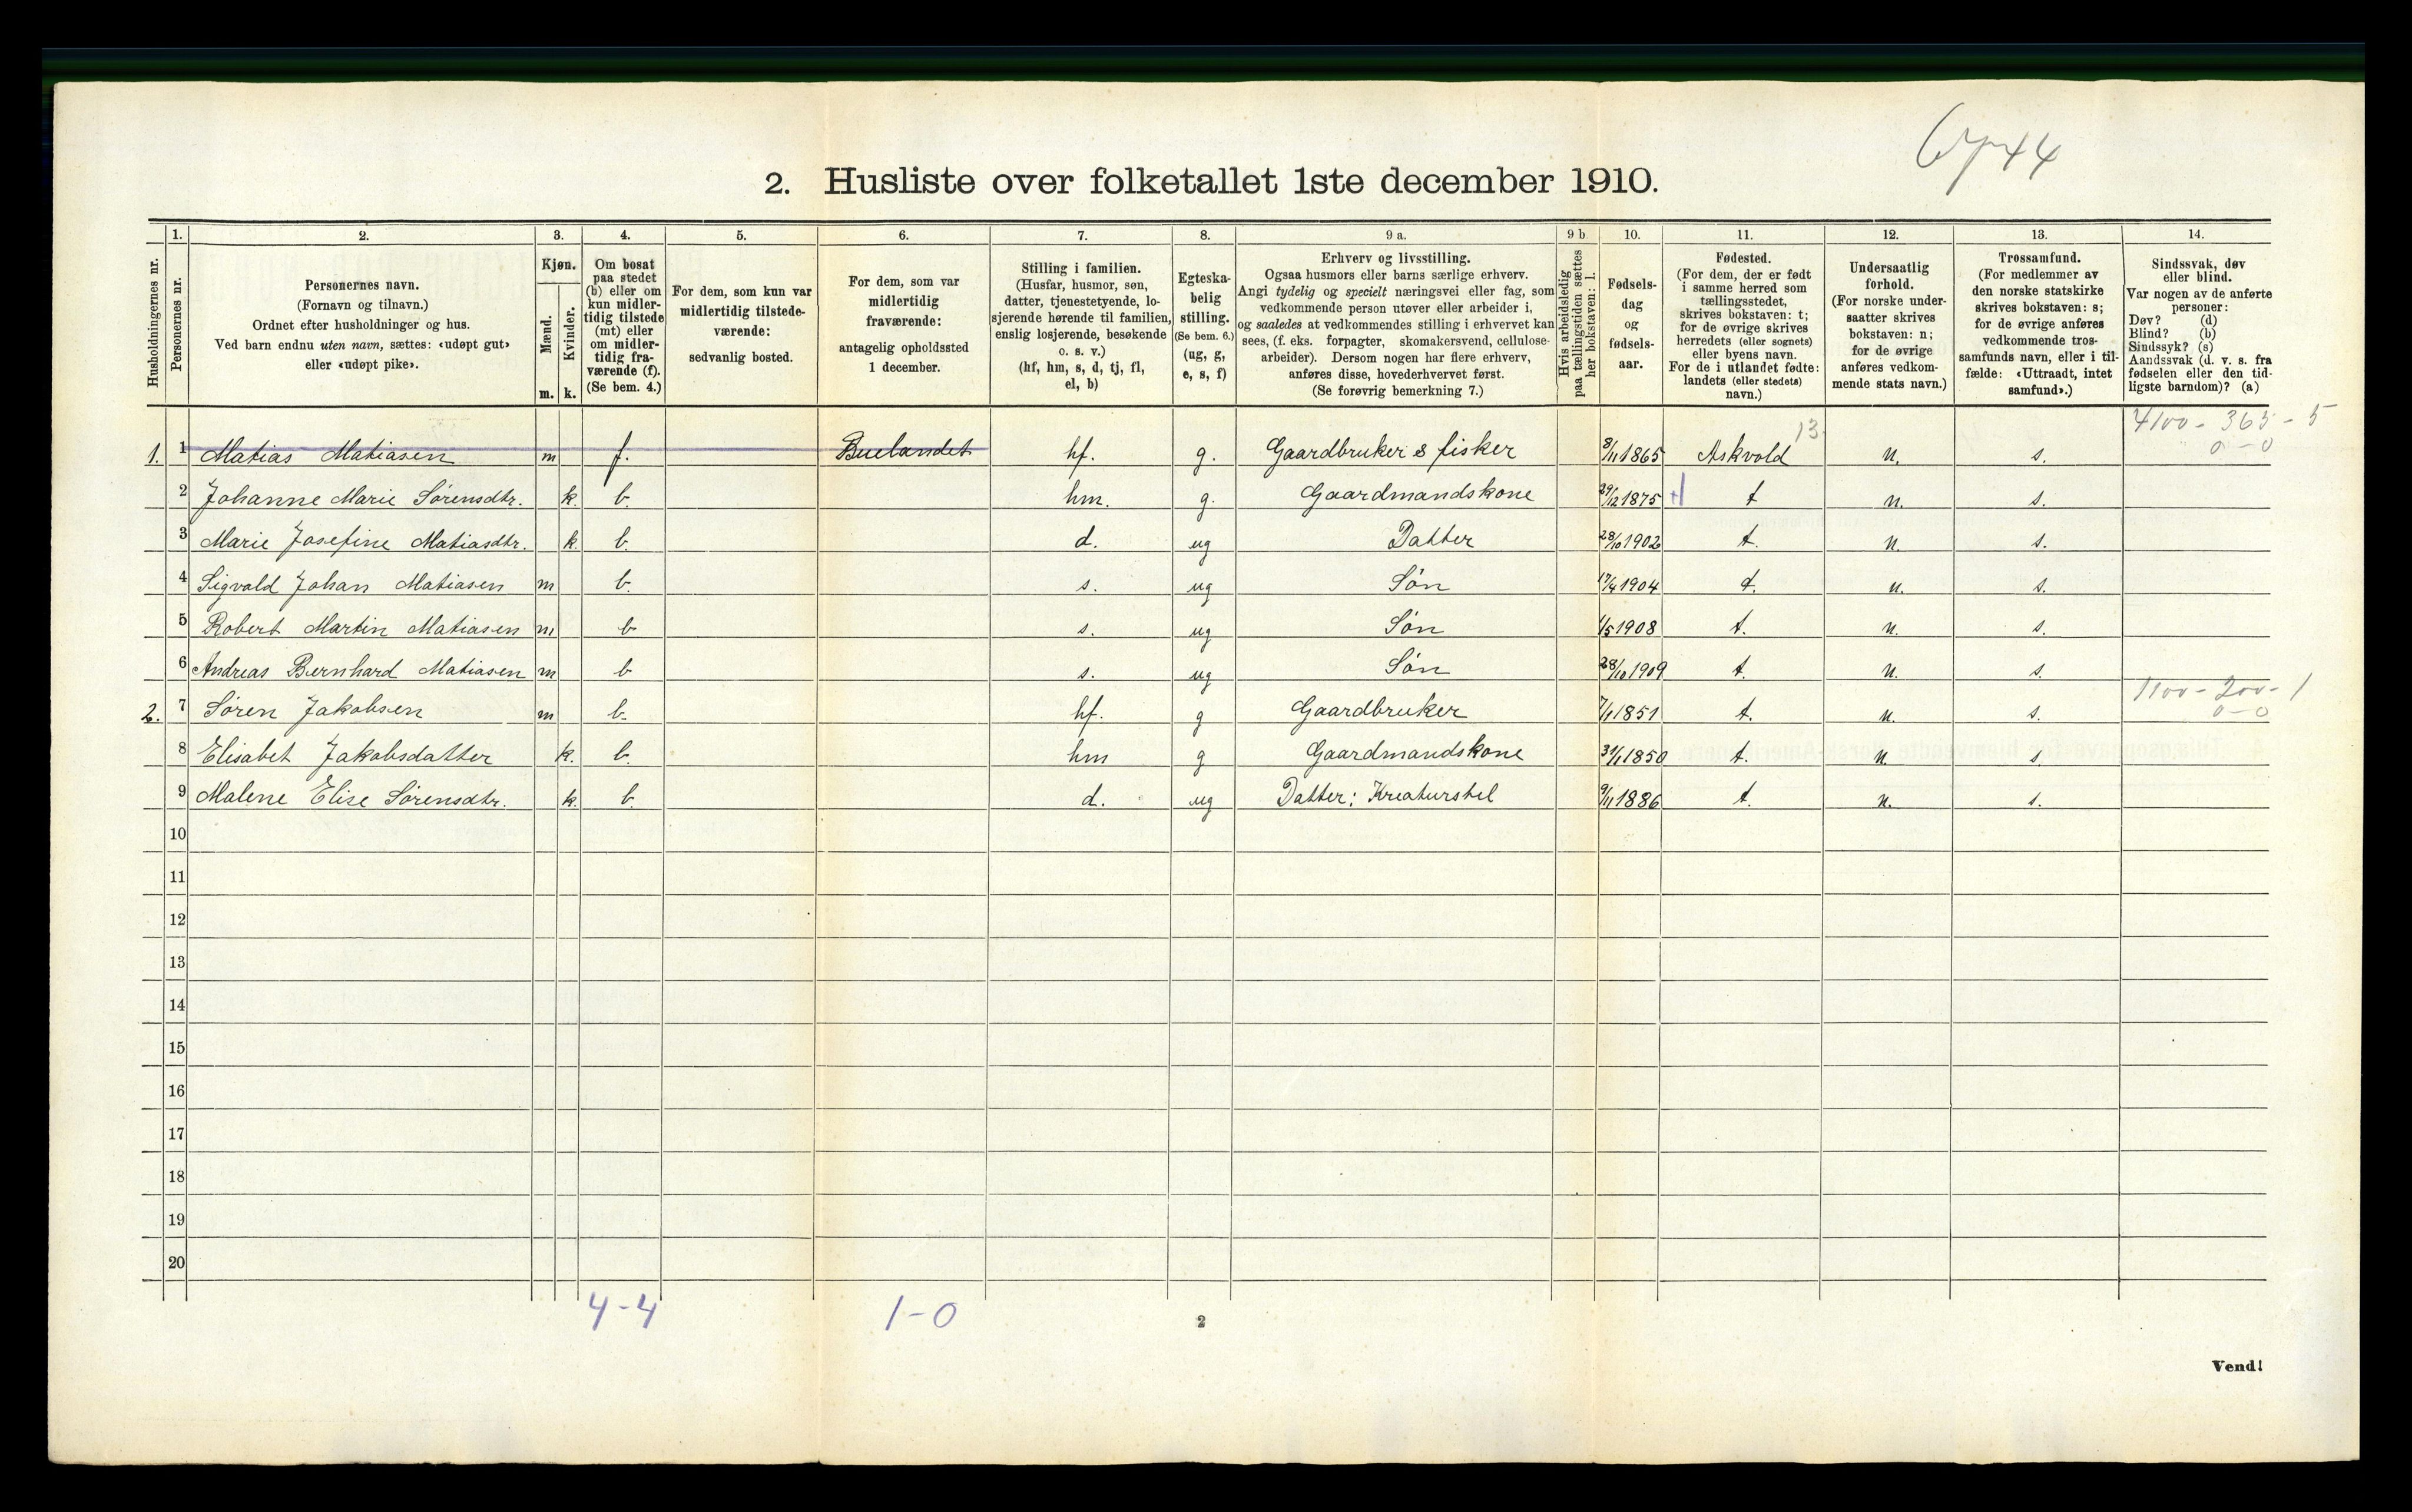 6744
2. Husliste over folketallet 1ste december 1910.
Husholdningernes nr.
1. Personernes nr.
2. Personernes navn.
(Fornavn og tilnavn.)
Ordnet efter husholdninger og hus.
Ved barn endnu uten navn, sættes: «udøpt gut»
eller «udøpt pike».
3. Kjøn.
Mænd. m.
Kvinder. k.
4. Om bosat
paa stedet
(b) eller om
kun midler-
tidig tilstede
(mt) eller
om midler-
tidig fra-
værende (f).
(Se bem. 4.)
5. For dem, som kun var
midlertidig tilstede-
værende:
sedvanlig bosted.
6. For dem, som var
midlertidig
fraværende:
antagelig opholdssted
1 december.
7. Stilling i familien.
(Husfar, husmor, søn,
datter, tjenestetyende, lo-
sjerende hørende til familien,
enslig losjerende, besøkende
o. s. v.)
(hf, hm, s, d, tj, fl,
el, b)
8. Egteska-
belig
stilling.
(Se bem. 6.)
(ug, g,
e, s, f)
9 a. Erhverv og livsstilling.
Ogsaa husmors eller barns særlige erhverv.
Angi tydelig og specielt næringsvei eller fag, som
vedkommende person utøver eller arbeider i,
og saaledes at vedkommendes stilling i erhvervet kan
sees, (f. eks. forpagter, skomakersvend, cellulose-
arbeider). Dersom nogen har flere erhverv,
anføres disse, hovederhvervet først.
(Se forøvrig bemerkning 7.)
9 b Hvis arbeidsledig
paa tællingstiden sættes
her bokstaven: l.
10. Fødsels-
dag
og
fødsels-
aar.
11. Fødested.
(For dem, der er født
i samme herred som
tællingsstedet,
skrives bokstaven: t;
for de øvrige skrives
herredets (eller sognets)
eller byens navn.
For de i utlandet fødte:
landets (eller stedets)
navn.)
12. Undersaatlig
forhold.
(For norske under-
saatter skrives
bokstaven: n;
for de øvrige
anføres vedkom-
mende stats navn.)
13. Trossamfund.
(For medlemmer av
den norske statskirke
skrives bokstaven: s;
for de øvrige anføres
vedkommende tros-
samfunds navn, eller i til-
fælde: «Uttraadt, intet
samfund».)
14. Sindssvak, døv
eller blind.
Var nogen av de anførte
personer:
Døv? (d)
Blind? (b)
Sindssyk? (s)
Aandssvak (d. v. s. fra
fødselen eller den tid-
ligste barndom)? (a)
13 4100 - 365 - 5
1. 1 Matias Matiasen m f. Buelandet hf. g. Gaardbruker & fisker 8/11 1865 Askvold n. s. 0 - 0
2 Johanne Marie Sørensdtr. k. b. hm. g. Gaardmandskone 29/12 1875 t n. s.
3 Marie Josefine Matiasdtr. k. b. d. ug Datter 28/10 1902 t. n. s.
4 Sigvald Johan Matiasen m b. s. ug Søn 17/4 1904 t. n. s.
5 Robert Martin Matiasen m b s. ug Søn 1/5 1908 t. n. s.
6 Andreas Bernhard Matiasen m b s. ug Søn 28/10 1909 t. n. s.
1100 - 200 - 1
2. 7 Søren Jakobsen m b. hf. g Gaardbruker 7/1 1851 t. n. s. 0 - 0
8 Elisabet Jakobsdatter k. b. hm g Gaardmandskone 31/1 1850 t. n. s
9 Malene Elise Sørensdtr. k. b. d. ug Datter; Kreaturstel 9/11 1886 t. n. s.
10
11
12
13
14
15
16
17
18
19
20
4 - 4 1 - 0
2
Vend!